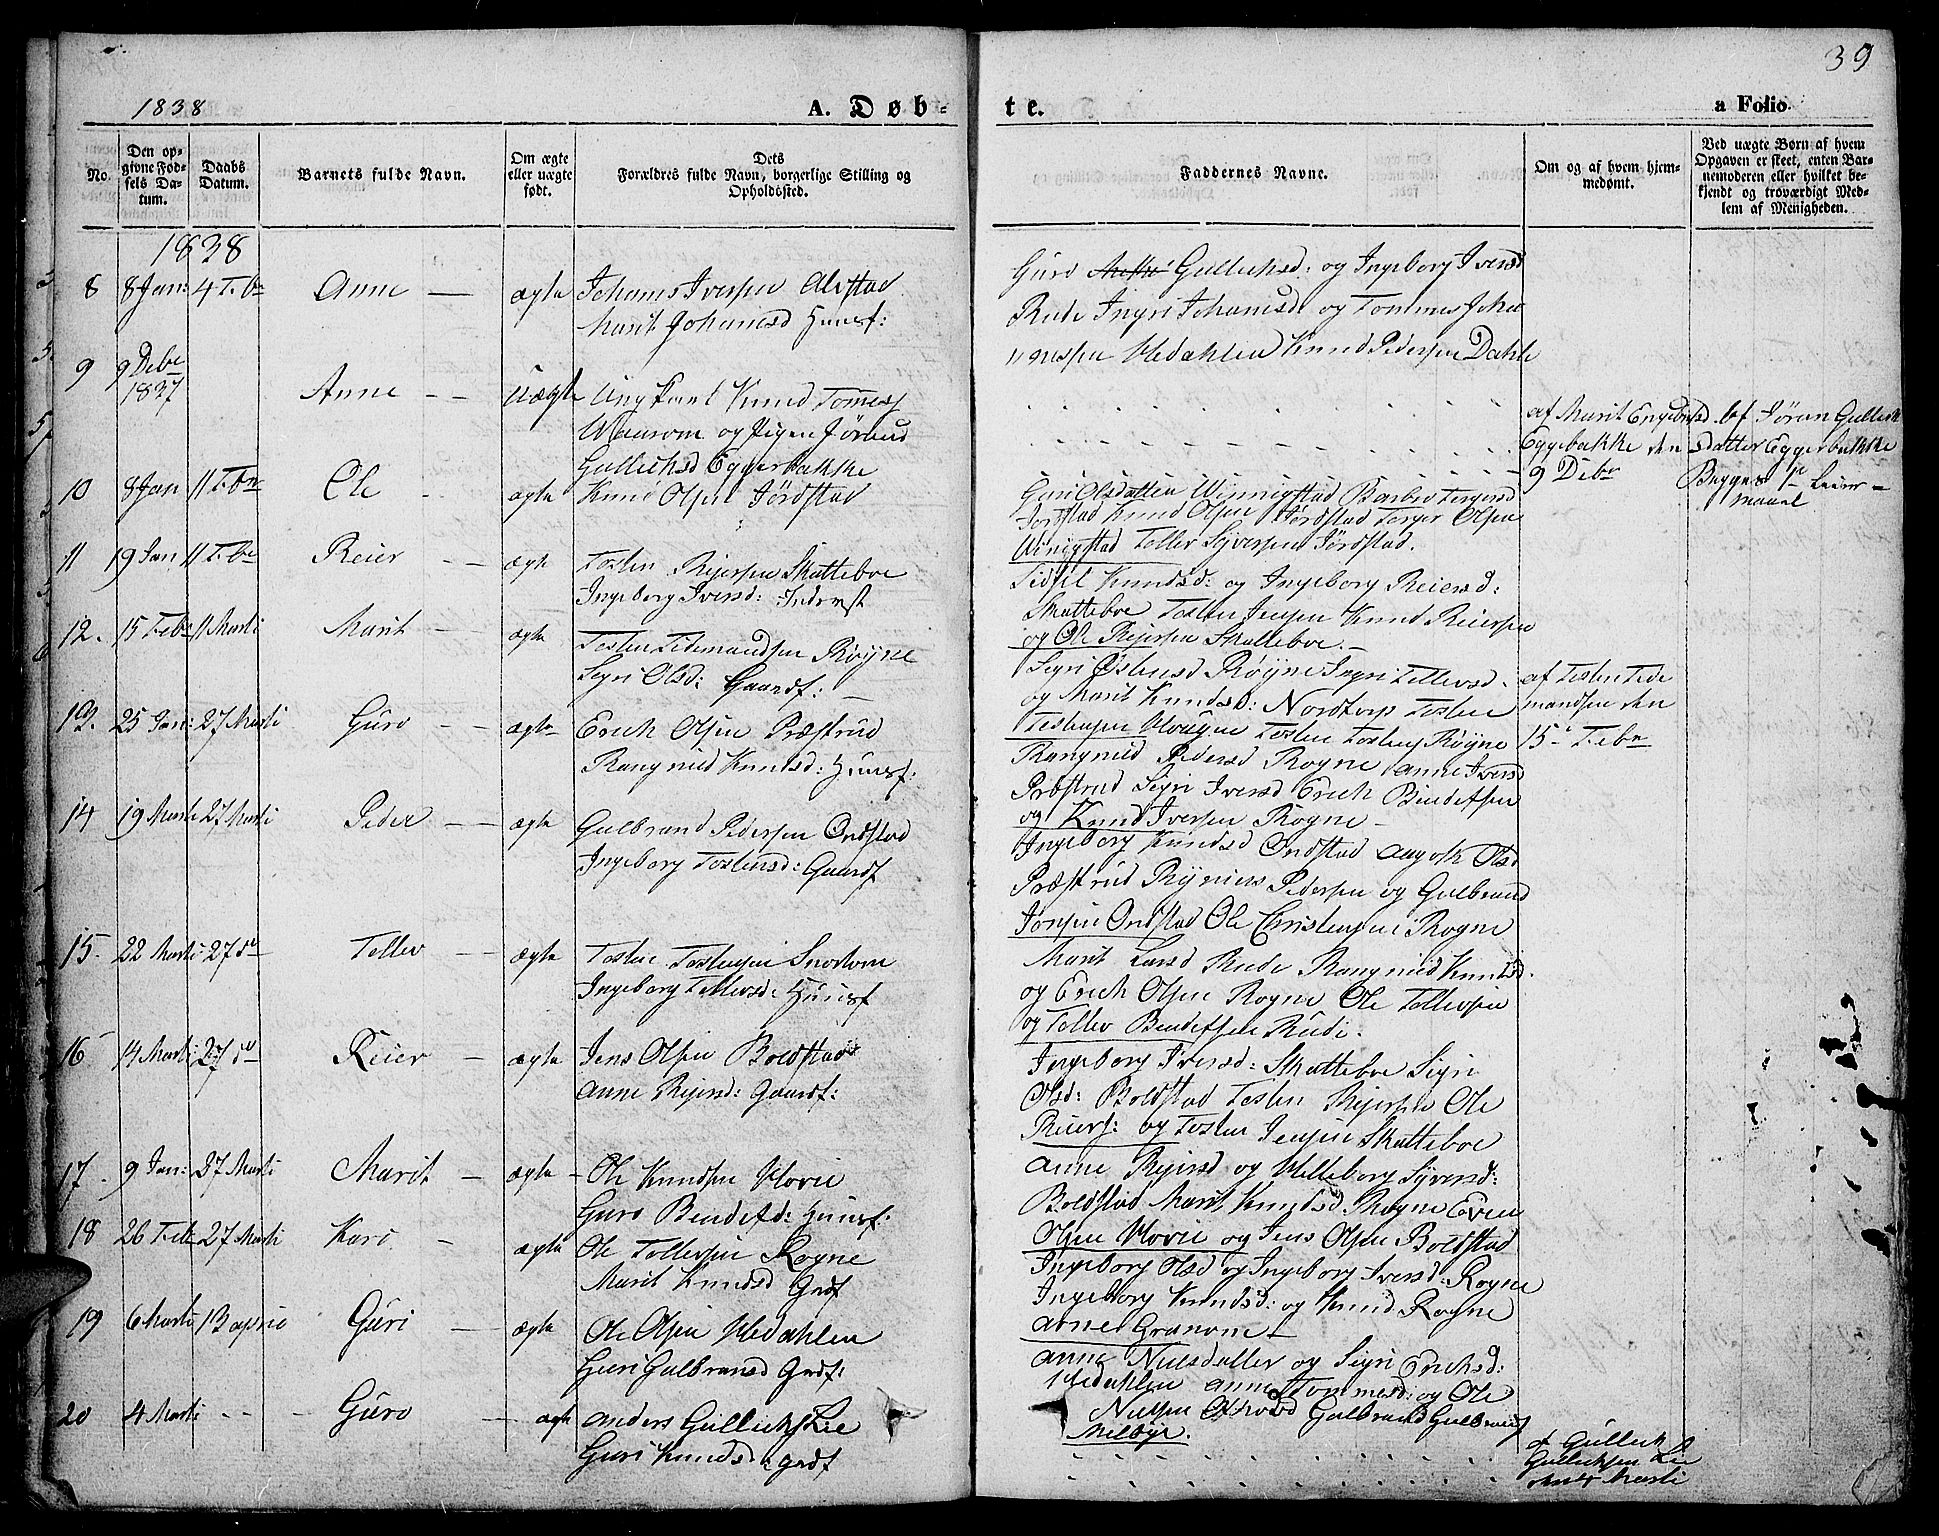 39
1838
A. Døb-
te.
a Folio
No.
Den op-
givne Fød-
sels Da-
tum.
Daabs
Datum.
Barnets fulde Navn.
Om ægte
eller uægte
født.
Dets
Forældres fulde Navn, borgerlige Stilling og
Opholdssted.
Faddernes Navne.
Om og af hvem hjem-
medømt.
Ved uægte Børn af hvem
Opgaven er skeet, enten Bar-
nemoderen eller hvilket be-
kjendt og troværdigt Med-
lem af Menigheden.
1838
8 8 Jan: 4 Febr Anne — ægte Johannes Iversen Alfstad
Marit Johannesd Huusf:
Guro Gullichsd: og Ingeborg Iversd
Rude Ingri Johannesd og Tommes Joha
nnesen Hedahlen Knud Pedersen Dahle
9 9 Debr
1837 Anne — Uægte Ung Karl Knud Tomes
og Pigen Jøran
Gullichsd Eggebakke
af Marit Engebrisd
Eggebakke den
9 Debr
af Jøran Gullich
Datter Eggebakke
Begges 1ste Leier-
maal
10 8 Jan 11 Febr Ole ægte Knud Olsen Jørdstad
Guri Olsdatter Winnigstad Barbro Torgersd
Jordstad Knud Olsen Jørdstad Torger Olsen
Winigstad Tollev Syversen Jørdstad.
11 19 Jan 11 Febr Reier — ægte Tosten Rejersen Skatteboe
Ingeborg Iversd: Inderst
Sidsel Knudsd: og Ingeborg Reiersd:
Skatteboe Tosten Jensen Knud Reiersen
og Ole Rejersen Skatteboe. —
12. 15 Febr 11 Marti Marit — ægte Tosten Tidemandsen Røyne
Sigri Olsd: Gaardf: —
Sigri Østensd Røyne Ingri Tollevsd.
og Marit Knudsd: Nordtorp Tosten
Tostensen Hougen Tosten Tostens Røyne
af Tosten Tide
mandsen den
15 Febr
13. 25 Jan: 27 Marti Guro — ægte Erich Olsen Præstrud
Rangnild Knudsd: Huusf:
Rangnild Pedersd Rogne Anne Iversd
Præstrud Sigri Iversd Erich Bendetsen
og Knud Iversen Rogne —
14 19 Marti 27 Marti Peder — ægte Gulbrand Pedersen Ondstad
Ingeborg Tostensd: Gaardf
Ingeborg Knudsd Ondstad Olsd
Præstrud Pedersen og Gulbrand
Ondstad Ole Christensen Rogne
15. 22 Marti 27 do Tollev — ægte Tosten Tostensen
Ingeborg Tollevsd: Huusf
Marit Larsd Rude Rangnild Knudsd
og Erich Olsen Rogne Ole Tollevsen
og Tollev Bendetsen Rudi.
16 14 Marti 27 do Reier — ægte Jens Olsen Boldstad
Anne Rejersd: Gaardf:
Ingeborg Iversd: Skatteboe Sigri
Olsd: Boldstad Tosten Rejersen Ole
Reiers: og Tosten Jensen Skatteboe
17. 9 Jan: 27 Marti Marit — ægte — Ole Knudsen Hovie
Guro Bendetsd: Huusf:
Anne Rejersd og Helleborg Syversd:
Boldstad Marit Knudsd Rogne Even
Olsen Hovie og Jens Olsen Boldstad
18 26 Feb 27 Marti Kari — ægte Ole Tollevsen Rogne
Marit Knudsd Grdf
Ingeborg Olsd og Ingeborg Iversd: Rogne
Ingeborg Knudsd: og Knud Rogne
Arne Granom —
19 6 Marti 13 April Guri — ægte Ole Olsen Hedahlen
Guri Gulbransd Grdf:
Anne Nielsdatter og Sigri Erichsd:
Hedahlen Anne Tommesd: og Ole
Nielsen Gulbrand Gulbrans
Melbye.
20 4 Marti - - - Guro — ægte Anders Gullichs Lie
Guri Knudsd grdf
af Gullich
Gullichsen Lie
den 4 Marti